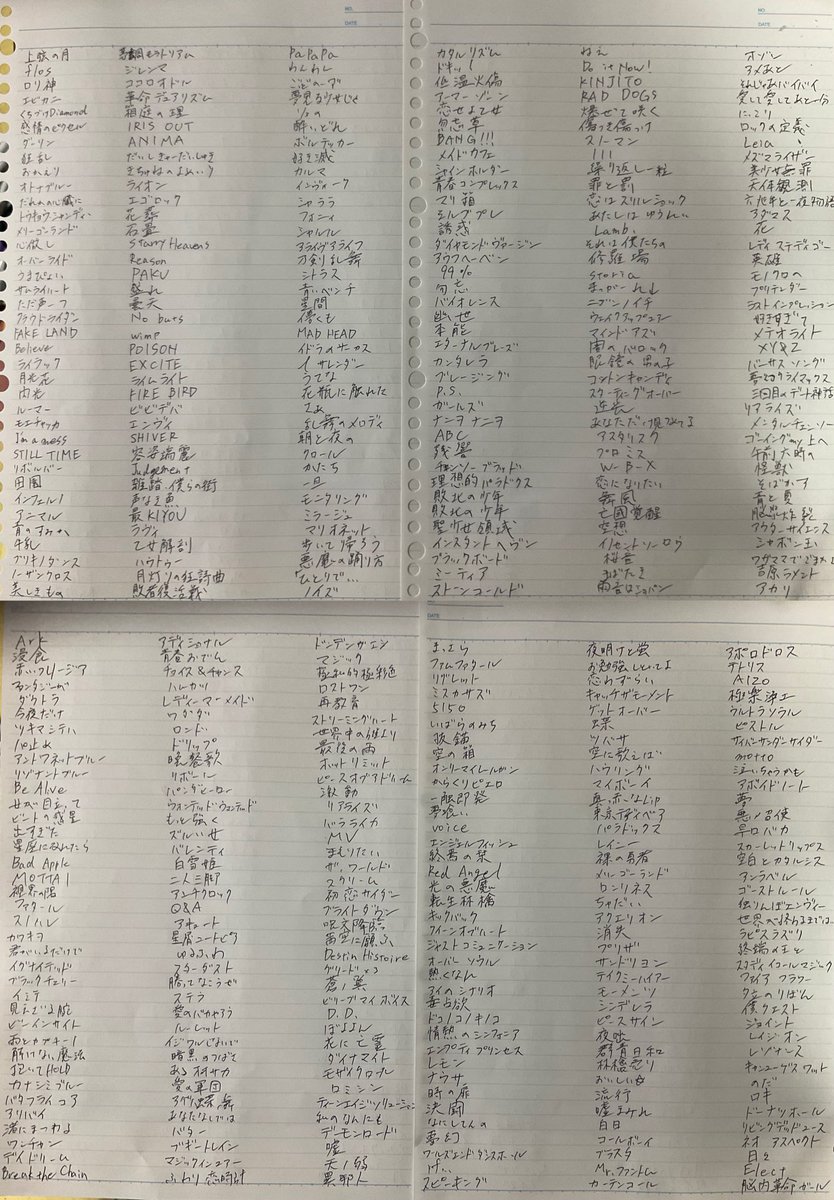 NO.
DATE
上弦の月
flos
ロリ神
エビカニ
くちづけDiamond
感情のピクセル
ダーリン
狂乱
おかえり
オトナブルー
だれかの心臓に
トウキョウシャンディ
メリーゴーランド
心做し
オーバーライド
うまぴょい
サムライハート
ただ声一つ
クラウドライダー
FAKE LAND
Believe
ライラック
月光花
内光
ルーマー
モエチャッカ
I'm a mess
STILL TIME
リボルバー
田園
インフェルノ
アニマル
青のすみか
牛乳
ブリキノダンス
ノーザンクロス
美しきもの
ジレンマ
ココロオドル
革命デュアリズム
箱庭の理
IRIS OUT
ANIMA
だいしきゅーだいしゅき
きちゅねのよめいり
ライオン
エゴロック
花葬
石畳
Starry Heavens
Reason
PAKU
盛れ
曇天
No buts
wimp
POISON
EXCITE
ライムライト
FIRE BIRD
ビビデバ
エンヴィ
SHIVER
容姿端麗
Judgement
雑踏、僕らの街
声なき魚
最KIYOU
ラヴィ
乙女解剖
ハウトゥー
月灯りの狂詩曲
敗者復活戦
PaPaPa
わんわん
夢見る少女じゃ
1/3の
酔いどれ
ボルテッカー
好き滅
カルマ
インヴォーク
シャララ
フォニィ
シャルル
アライヴアライフ
刀剣乱舞
シトラス
青いベンチ
星間
儚くも
MAD HEAD
イドラのサーカス
I サレンダー
うてな
花瓶に触れた
さぁ
乱舞のメロディ
朝と夜の
クロール
かたち
一旦
モニタリング
ミラージュ
マリオネット
歩いて帰ろう
悪魔の踊り方
ひとりで…
ノイズ
NO
DATE
カタルリズム
ドキッ!
低温火傷
アーマーゾーン
恋せよ乙女
勿忘草
BANG!!!
メイドカフェ
シャインホルダー
青春コンプレックス
マリ箱
シルブプレ
誘惑
ダイヤモンドヴァージン
アウフヘーベン
99%
勿忘
バイオレンス
幽世
本能
エターナルブレーズ
カンタレラ
ブレージング
P.S.
ガールズ
ナニヲナニヲ
ABC
残響
チェンソーブラッド
理想的パラドクス
敗北の少年
敗北の少年
聖少女領域
インスタントヘヴン
ブラックボード
ミーティア
ストーンコールド
ねぇ
Do it Now!
KINJITO
BAD DOGS
爆ぜて咲く
傷つき傷つけ
スノーマン
111
繰り返し一粒
罪と罰
恋はスリルショック
あたしはゆうれい
Lamb.
それは僕たちの
修羅場
storia
まっがーれ↓
ニブンノイチ
ウェイクアップユア
マインドアズ
闇のバロック
眼鏡の男の子
コットンキャンディ
スターティングオーバー
逆光
あなただけ見つめてる
アスタリスク
プロミス
W-B-X
恋になりたい
舞風
亡國覚醒
空想
イノセントソーロウ
桜音
まばたき
雨音はショパン
オゾン
アメあと
それじゃあバイバイ
愛して愛してあと一分
にっこり
ロックの定義
Leia
メズマライザー
美少女無罪
天体観測
六兆年と一夜物語
アダマス
花
レディステディゴー
英雄
モノクロへ
プリテンダー
ラストインプレッション
好きすぎて
メテオライト
XY&Z
バーサスソング
夢で夜クライマックス
三回目のデート神話
リアライズ
メンタルチェンソー
ゴーイングマイ上へ
午前六時の
怪獣
そばかす
青と夏
脳漿炸裂
アウターサイエンス
シャボン玉
ワガママでごめ×2
吉原ラメント
アカリ
Ark
浸食
赤いフリージア
ファンタジーが
ダクトラ
今夜だけ
ツキマシテハ
パ止め
アントワネットブルー
リゾナントブルー
Be Alive
女が目立って
ビートの惑星
出すぎた
星屑に忘れたら
Bad Apple
MOTTAI
雑畏の階
フォタール
スノハレ
カワキヲ
君がいるだけで
イグナイテッド
ブラックチェリー
イミテ
見えざる腕
ビーインサイト
おとカナキー!
解けない魔法
抱いてHOLD
カナシミブルー
バタフライコア
アリバイ
渚にまつわる
ワンチャン
デイドリーム
Break the Chain
アディショナル
青春おでん
チョイス&チャンス
ハレカツ
レディーマーメイド
ワダダ
ロンド
ドリップ
暁整歌
リボール
パンダヒーロー
ウォンテッドウォンテッド
もっと強く
ズルい女
バレンティ
白雪姫
二人三脚
アンチクロック
Q&A
アキュート
星屑ユートピア
ゆるふわ
スターダスト
勝ってなこうぜ
ステラ
愛のバカやろう
ルーレット
イジワルしないで
暗黒のつばさ
ある村サカ
愛の軍団
アゲハ蝶舞
あなたなしでは
バター
ブギートレイン
マジックインユアー
ふわり恋時計
ドンデンガエシ
マジック
極私的極彩色
ロストワン
再教育
ストリーミングハート
世界中の誰より
最後の雨
ホットリミット
ピースオブアドハーム
激動
リアライズ
バラライカ
MV
まもりたい
ザ、ワールド
スクリーム
初恋サイダー
ブライトダウン
呪文降臨
青空に願ふ
Destin Histoire
グリード×3
蒼ノ翼
ビリーブマイボイス
D.D.
ぽよよん
花に亡霊
ダイナマイト
モザイクロール
ロミシン
ティーンエイジソリューション
私のなんにも
デーモンロード
嘘
天ノ弱
異邦人
DATE
まっさら
ファムファタール
リグレット
ミスカサズ
5150
いばらのみち
抜錨
空の箱
オンリーマイレールガン
からくりピエロ
一触即発
夢喰い
voice
エンジェルフィッシュ
終焉の栞
Red Angel
光の悪魔
転生林檎
キックバック
クイーンオブハート
ジャストコミュニケーション
オーバーソウル
熱くなれ
アイのシナリオ
毒占欲
ドコノコノキノコ
情熱のシンフォニア
エンプティプリンセス
レモン
ナウサ
時の扉
決闘
なにしてんの
夢幻
ワールズエンドダンスホール
け…
スピーキング
夜明けと蛍
お勉強しといてよ
恋わずらい
キャッチザモーメント
ゲットオーバー
蝶
ツバサ
空に歌えば
ハウリング
マイボーイ
真っ赤なLip
東京テディベア
パラドックス
レイニー
裸の勇者
メリーゴーランド
ロンリネス
ちゃだい
アクエリオン
消失
プリザ
サンドリヨン
テイクミーハイアー
モーメンツ
シンデレラ
ピースサイン
夜咄
群青日和
林檎売り
おいしいな
流行
嘘まみれ
白日
コールボーイ
プラスタ
Mr.ファントム
カーテンコール
アポロドロス
テトリス
AIZO
極楽浄土
ウルトラソウル
ピストル
サイバーサンダーサイダー
motto
泣いちゃうかも
アボイドノート
夢
悪ノ召使
早口バカ
スカーレットリップス
空白とカタルシス
アンラベル
ゴーストルール
独りんぼエンヴィー
世界が終わるまでは
ラピスラズリ
終端の王と
スタディコールマジック
ファイアフラワー
夕立のりぼん
僕クエスト
ジョイント
レイジオン
レゾナンス
キャンユーゲスワット
のだ
ロキ
ドーナツホール
リビングデッドユース
ネオアスペクト
日々
Elect
脳内革命ガール